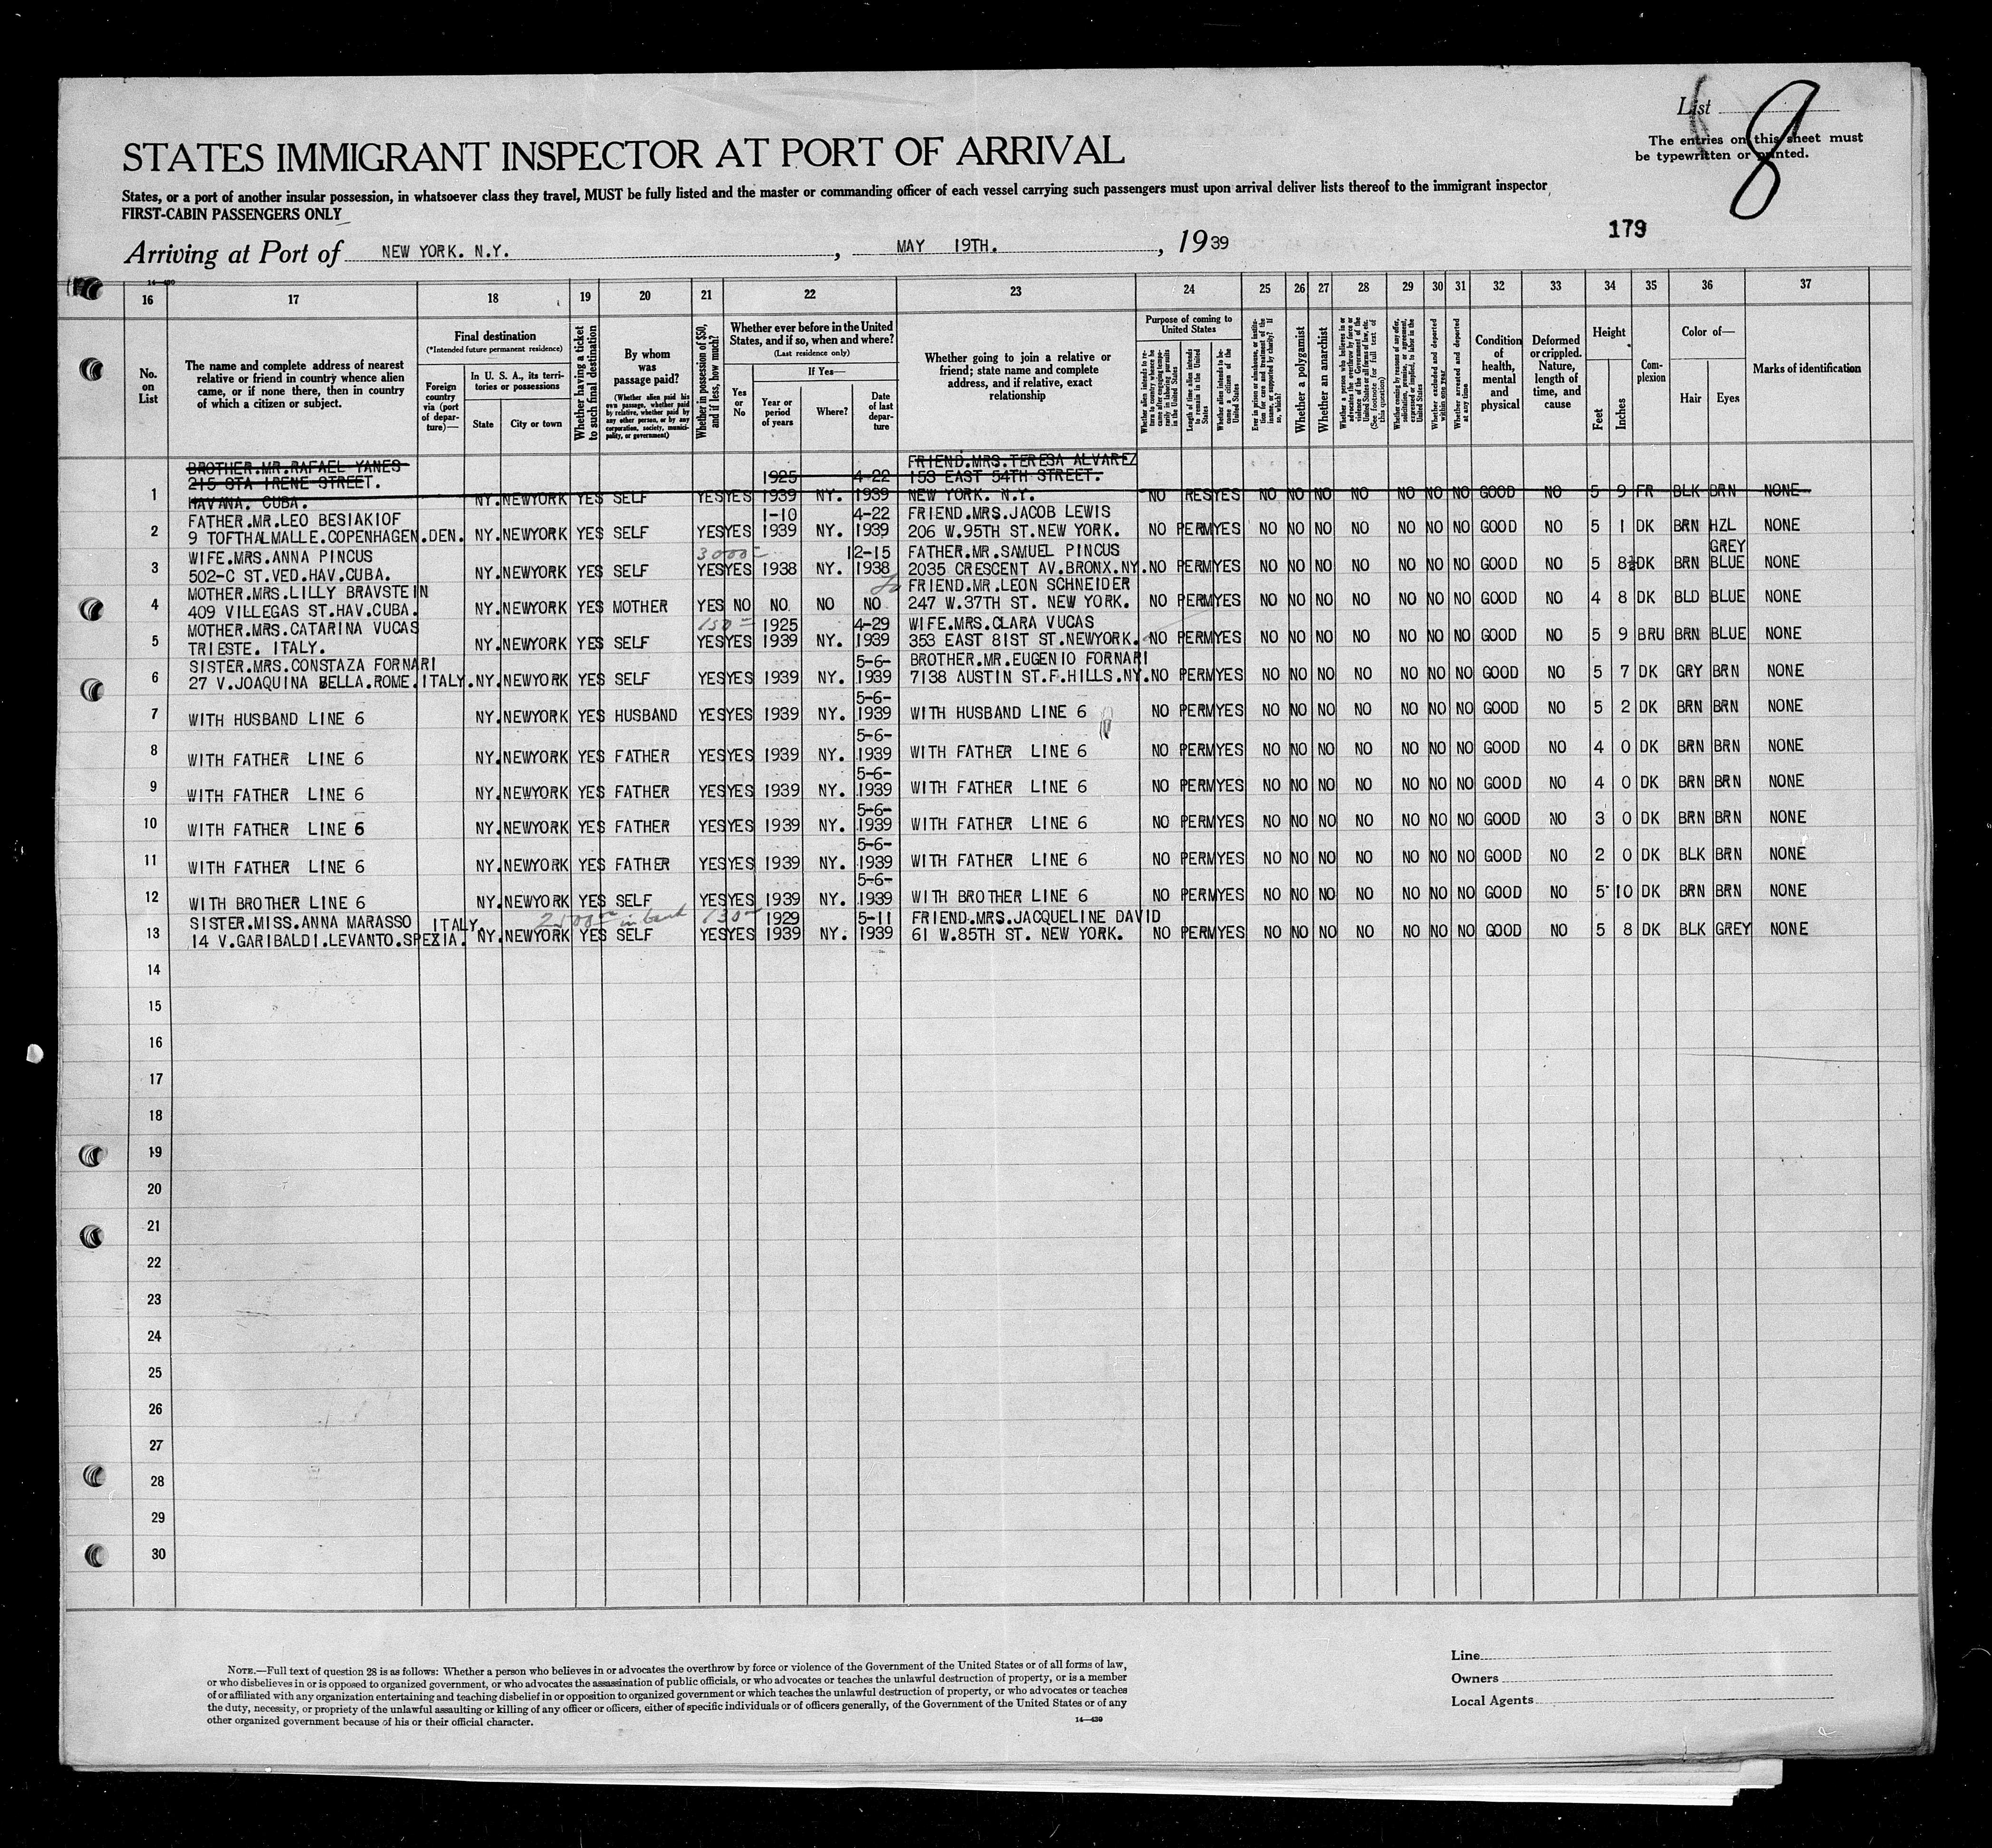 List 8
The entries on this sheet must
be typewritten or printed.
STATES IMMIGRANT INSPECTOR AT PORT OF ARRIVAL
States, or a port of another insular possession, in whatsoever class they travel, MUST be fully listed and the master or commanding officer of each vessel carrying such passengers must upon arrival deliver lists thereof to the immigrant inspector
FIRST-CABIN PASSENGERS ONLY
179
Arriving at Port of NEW YORK. N.Y. , MAY 19TH. , 1939
14—430
16 17 18 19 20 21 22 23 24 25 26 27 28 29 30 31 32 33 34 35 36 37
No. on List
The name and complete address of nearest
relative or friend in country whence alien
came, or if none there, then in country
of which a citizen or subject.
Final destination
(*Intended future permanent residence)
Foreign country via (port of departure)—
In U. S. A., its territories or possessions
State
City or town
Whether having a ticket to such final destination
By whom was passage paid?
(Whether alien paid his own passage, whether paid by relative, whether paid by any other person, or by any corporation, society, municipality, or government)
Whether in possession of $50, and if less, how much?
Whether ever before in the United States, and if so, when and where?
(Last residence only)
Yes or No
If Yes—
Year or period of years
Where?
Date of last departure
Whether going to join a relative or
friend; state name and complete
address, and if relative, exact
relationship
Purpose of coming to United States
Whether alien intends to return to country whence he came after engaging temporarily in laboring pursuits in the United States
Length of time alien intends to remain in the United States
Whether alien intends to become a citizen of the United States
Ever in prison or almshouse, or institution for care and treatment of the insane, or supported by charity? If so, which?
Whether a polygamist
Whether an anarchist
Whether a person who believes in or advocates the overthrow by force or violence of the Government of the United States or all forms of law, etc. (See footnote for full text of this question)
Whether coming by reasons of any offer, solicitation, promise, or agreement, expressed or implied, to labor in the United States
Whether excluded and deported within one year
Whether arrested and deported at any time
Condition of health, mental and physical
Deformed or crippled. Nature, length of time, and cause
Height
Feet
Inches
Complexion
Color of—
Hair
Eyes
Marks of identification
BROTHER.MR.RAFAEL YANES FRIEND.MRS.TERESA ALVAREZ
215 STA IRENE STREET. 1925 4-22 153 EAST 54TH STREET.
1 HAVANA. CUBA. NY. NEWYORK YES SELF YES YES 1939 NY. 1939 NEW YORK. N.Y. NO RES YES NO NO NO NO NO NO NO GOOD NO 5 9 FR BLK BRN NONE
FATHER.MR.LEO BESIAKIOF 1-10 4-22 FRIEND.MRS.JACOB LEWIS
2 9 TOFTHALMALLE.COPENHAGEN.DEN. NY. NEWYORK YES SELF YES YES 1939 NY. 1939 206 W.95TH ST.NEW YORK. NO PERM YES NO NO NO NO NO NO NO GOOD NO 5 1 DK BRN HZL NONE
WIFE.MRS.ANNA PINCUS 3000 12-15 FATHER.MR.SAMUEL PINCUS GREY
3 502-C ST.VED.HAV.CUBA. NY. NEWYORK YES SELF YES YES 1938 NY. 1938 2035 CRESCENT AV.BRONX.NY. NO PERM YES NO NO NO NO NO NO NO GOOD NO 5 8½ DK BRN BLUE NONE
MOTHER.MRS.LILLY BRAVSTEIN FRIEND.MR.LEON SCHNEIDER
4 409 VILLEGAS ST.HAV.CUBA. NY. NEWYORK YES MOTHER YES NO NO NO NO 247 W.37TH ST. NEW YORK. NO PERM YES NO NO NO NO NO NO NO GOOD NO 4 8 DK BLD BLUE NONE
MOTHER.MRS.CATARINA VUCAS 150 1925 4-29 WIFE.MRS.CLARA VUCAS
5 TRIESTE. ITALY. NY. NEWYORK YES SELF YES YES 1939 NY. 1939 353 EAST 81ST ST.NEWYORK. NO PERM YES NO NO NO NO NO NO NO GOOD NO 5 9 BRU BRN BLUE NONE
SISTER.MRS.CONSTAZA FORNARI 5-6- BROTHER.MR.EUGENIO FORNARI
6 27 V.JOAQUINA BELLA.ROME.ITALY. NY. NEWYORK YES SELF YES YES 1939 NY. 1939 7138 AUSTIN ST.F.HILLS.NY. NO PERM YES NO NO NO NO NO NO NO GOOD NO 5 7 DK GRY BRN NONE
5-6-
7 WITH HUSBAND LINE 6 NY. NEWYORK YES HUSBAND YES YES 1939 NY. 1939 WITH HUSBAND LINE 6 NO PERM YES NO NO NO NO NO NO NO GOOD NO 5 2 DK BRN BRN NONE
5-6-
8 WITH FATHER LINE 6 NY. NEWYORK YES FATHER YES YES 1939 NY. 1939 WITH FATHER LINE 6 NO PERM YES NO NO NO NO NO NO NO GOOD NO 4 0 DK BRN BRN NONE
5-6-
9 WITH FATHER LINE 6 NY. NEWYORK YES FATHER YES YES 1939 NY. 1939 WITH FATHER LINE 6 NO PERM YES NO NO NO NO NO NO NO GOOD NO 4 0 DK BRN BRN NONE
5-6-
10 WITH FATHER LINE 6 NY. NEWYORK YES FATHER YES YES 1939 NY. 1939 WITH FATHER LINE 6 NO PERM YES NO NO NO NO NO NO NO GOOD NO 3 0 DK BRN BRN NONE
5-6-
11 WITH FATHER LINE 6 NY. NEWYORK YES FATHER YES YES 1939 NY. 1939 WITH FATHER LINE 6 NO PERM YES NO NO NO NO NO NO NO GOOD NO 2 0 DK BLK BRN NONE
5-6-
12 WITH BROTHER LINE 6 NY. NEWYORK YES SELF YES YES 1939 NY. 1939 WITH BROTHER LINE 6 NO PERM YES NO NO NO NO NO NO NO GOOD NO 5 10 DK BRN BRN NONE
SISTER.MISS.ANNA MARASSO ITALY. 2500 in bank 130 1929 5-11 FRIEND.MRS.JACQUELINE DAVID
13 14 V.GARIBALDI.LEVANTO.SPEZIA. NY. NEWYORK YES SELF YES YES 1939 NY. 1939 61 W.85TH ST. NEW YORK. NO PERM YES NO NO NO NO NO NO NO GOOD NO 5 8 DK BLK GREY NONE
14
15
16
17
18
19
20
21
22
23
24
25
26
27
28
29
30
NOTE.—Full text of question 28 is as follows: Whether a person who believes in or advocates the overthrow by force or violence of the Government of the United States or of all forms of law,
or who disbelieves in or is opposed to organized government, or who advocates the assassination of public officials, or who advocates or teaches the unlawful destruction of property, or is a member
of or affiliated with any organization entertaining and teaching disbelief in or opposition to organized government or which teaches the unlawful destruction of property, or who advocates or teaches
the duty, necessity, or propriety of the unlawful assaulting or killing of any officer or officers, either of specific individuals or of officers generally, of the Government of the United States or of any
other organized government because of his or their official character.
14—430
Line
Owners
Local Agents